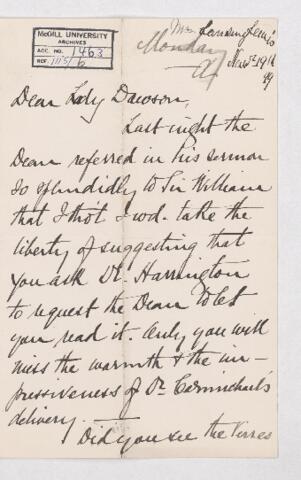 McGILL UNIVERSITY
ARCHIVES
ACC. NO. 1463
REF. 1115/6
Mrs Lansing Lewis
Monday
Nov 19th
99
Dear Lady Dawson,
Last night the
Dean referred in his sermon
so splendidly to Sir William
that I thot I wod. take the
liberty of suggesting that
you ask Dr. Harrington
to request the Dean to let
you read it. Only, you will
miss the warmth & the im-
pressiveness of Dr Carmichael's
delivery. —
Did you see the verses